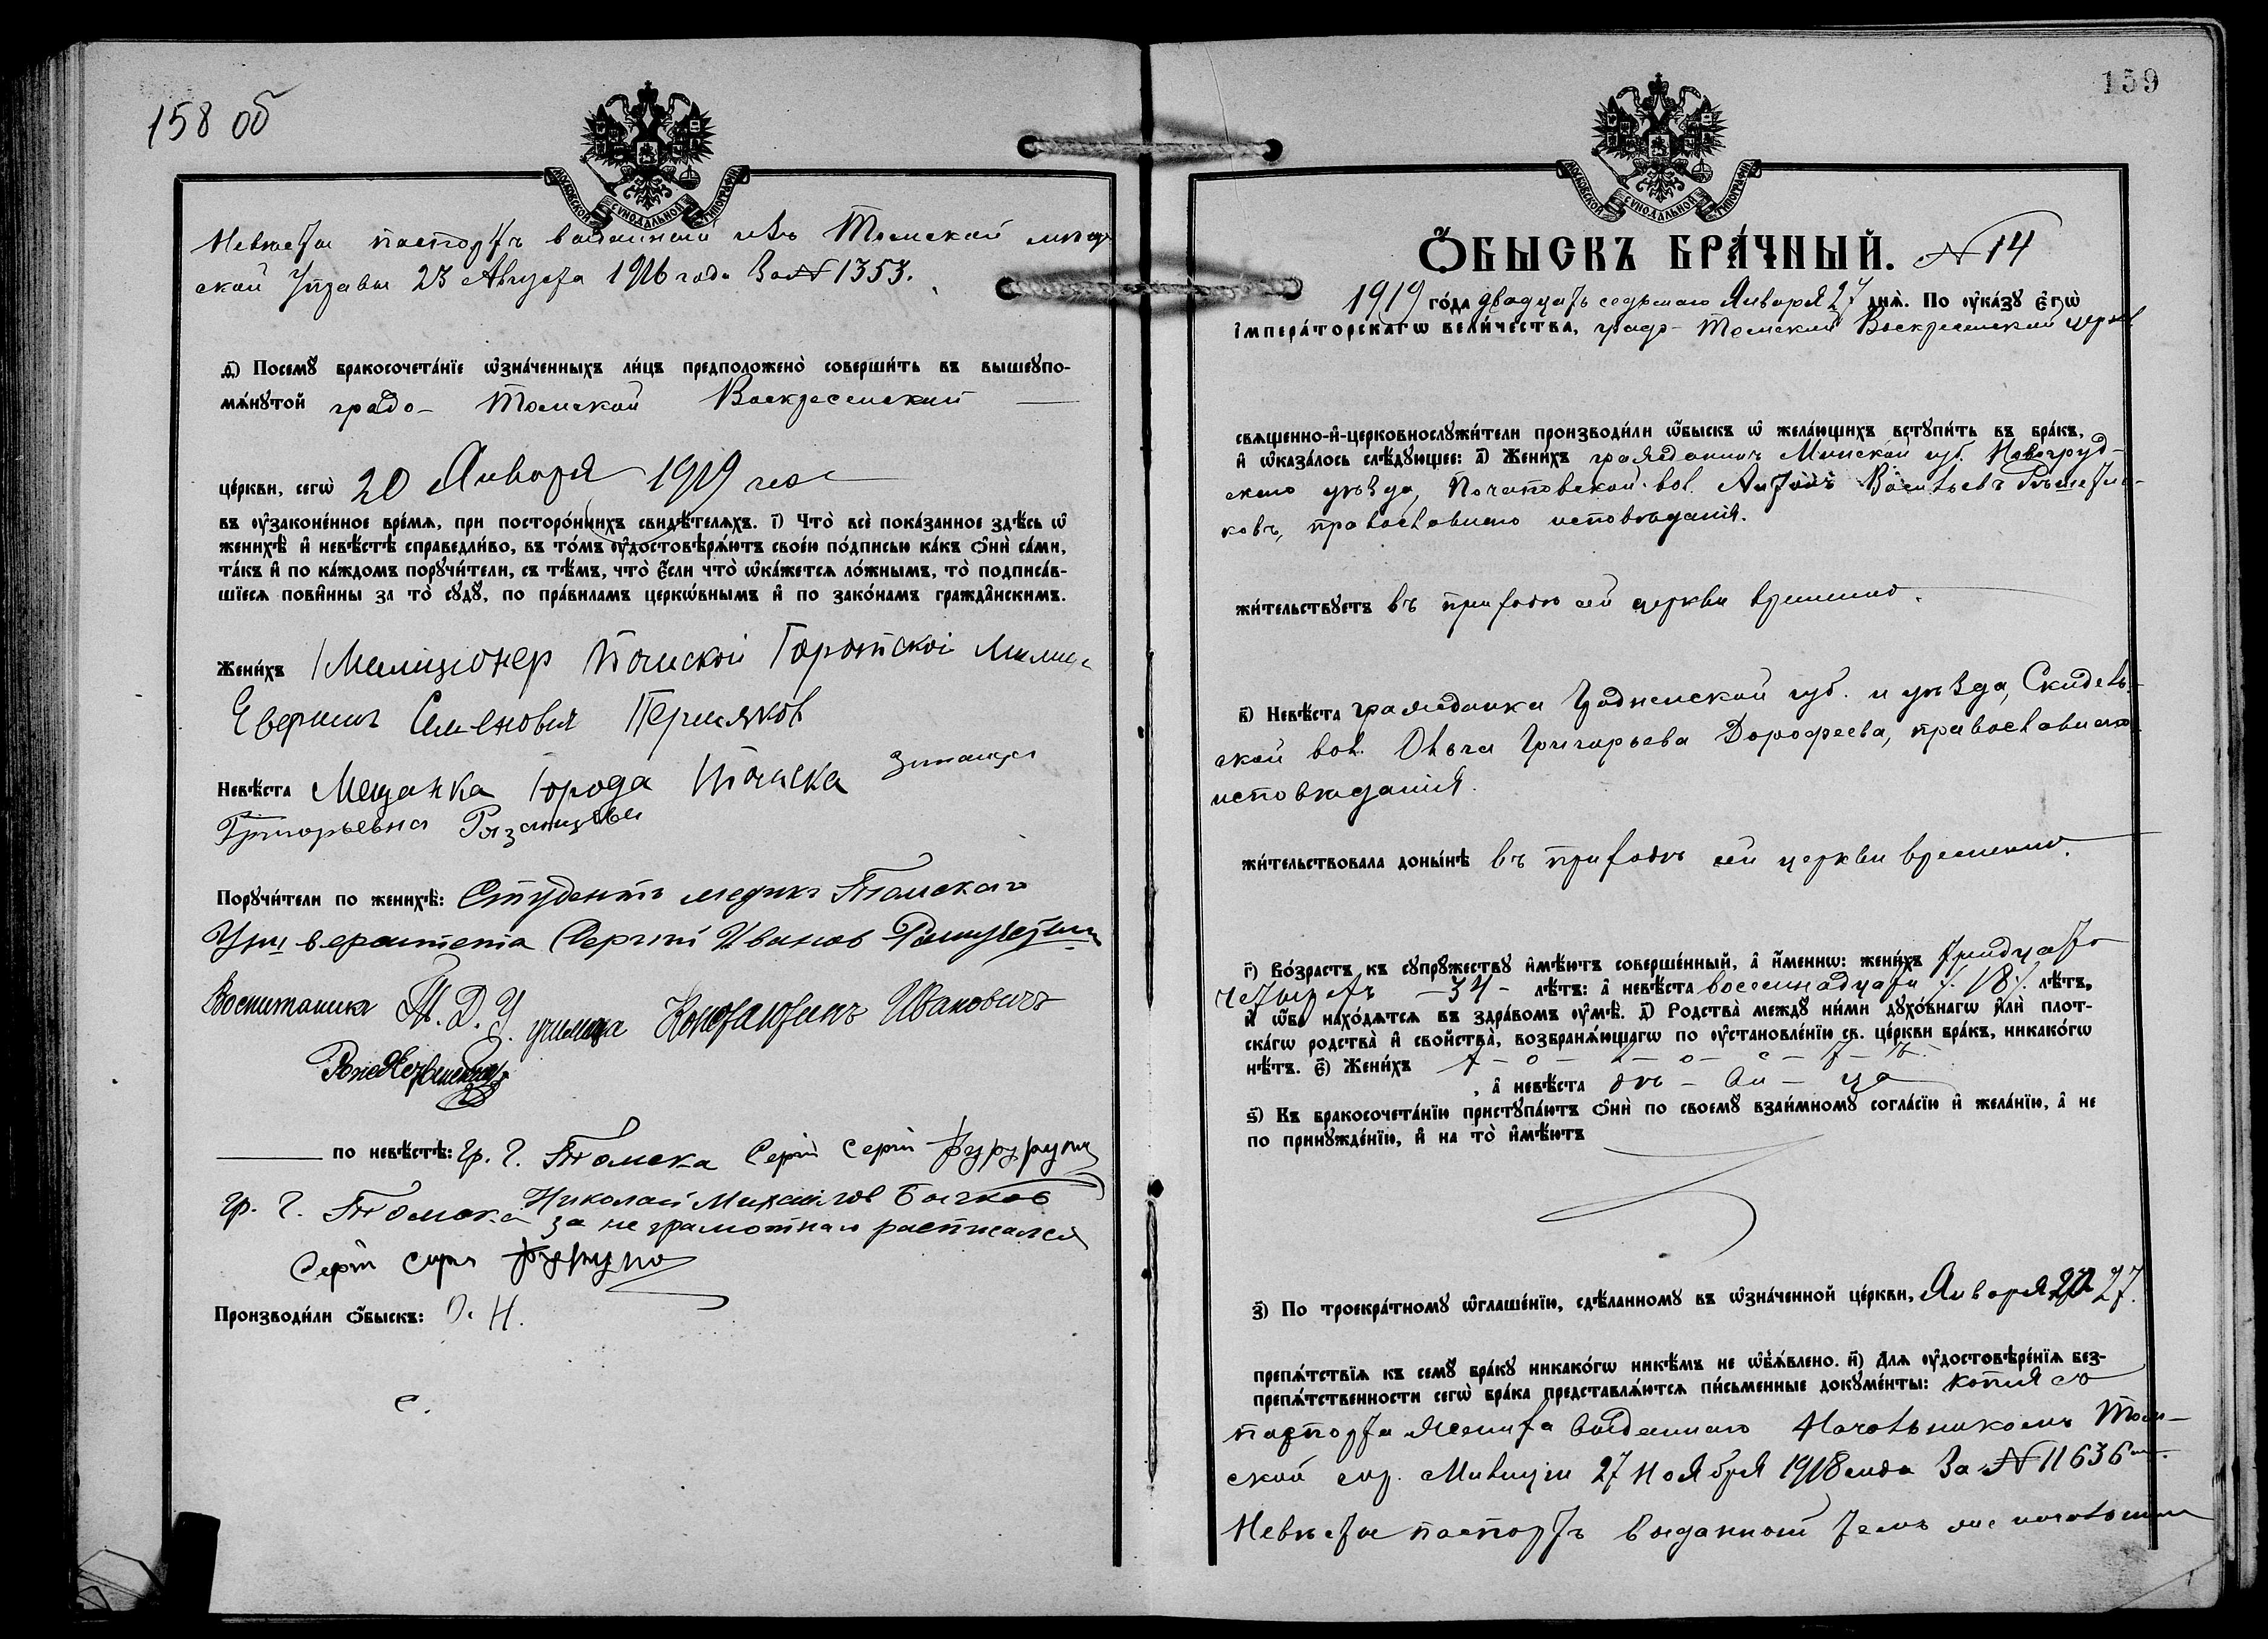 158 об
МОСКОВСКОЙ СУНОДАЛЬНОЙ ТИПОГРАФІИ
Невѣсты паспортъ выданный изъ Томской мѣщан
ской Управы 23 Августа 1916 года За № 1353.
д҃) Посемꙋ̀ бракосочета́нїе ѡ҆зна́ченныхъ ли́цъ предположено̀ соверши́ть въ вышеꙋпо-
мѧ́нꙋтой градо- Томской Воскресенской —
це́ркви, сегѡ̀ 20 Января 1919 года
въ ᲂу҆законе́нное вре́мѧ, при посторо́ннихъ свидѣ́телѧхъ. і҃) Что̀ всѐ пока́занное здѣ́сь ѡ҆
женихѣ̀ и҆ невѣ́стѣ справедли́во, въ то́мъ ᲂу҆достовѣрѧ́ютъ свое́ю по́дписью ка́къ ѻ҆нѝ са́ми,
та́къ и҆ по ка́ждомъ порꙋчи́тели, съ тѣ́мъ, что̀ є҆́сли что̀ ѡ҆ка́жетсѧ ло́жнымъ, то̀ подписа́в-
шїесѧ пови́нны за то̀ сꙋдꙋ̀, по пра́виламъ церкѡ́внымъ и҆ по зако́намъ гражда́нскимъ.
Жени́хъ Милиціонер Томской Городской Милиц
Семенович Пермяков
Невѣ́ста Мещанка Города Томска Зинаида
Григорьевна
Порꙋчи́тели по женихѣ̀: Студентъ медикъ Томскаго
Университета Сергѣй Иванов
Воспитаника Т. Д. У. училища Константинъ Ивановичъ
по невѣ́стѣ: Гр. г. Томска Сергѣй Сергѣй
Гр. г. Томска Николай Михайлов Бычков
за не грамотнаго расписался
Сергѣй
Производи́ли ѻ҆́быскъ: О. Н.
с.
159
МОСКОВСКОЙ СУНОДАЛЬНОЙ ТИПОГРАФІИ
Ѻ҆́БЫСКЪ БРА́ЧНЫЙ. № 14
1919 го́да двадцать седьмаго Января 27 днѧ̀. По ᲂу҆ка́зꙋ є҆гѡ̀
і҆мпера́торскагѡ вели́чества, градо- Томской Воскресенской церкви
свѧще́нно-и҆-церковнослꙋжи́тели производи́ли ѡ҆́быскъ ѡ҆ жела́ющихъ встꙋпи́ть въ бра́къ,
и҆ ѡ҆каза́лось слѣ́дꙋющее: а҃) Жени́хъ гражданинъ Минской губ. Новогруд-
скаго уѣзда, Почаповской вол. Антонъ Васильевъ
ковъ, православнаго исповѣданія.
жи́тельствꙋетъ въ приходѣ сей церкви временно.
в҃) Невѣ́ста гражданка Гродненской губ. и уѣзда, Скидель-
ской вол. Ольга Григорьева Дорофеева, православнаго
исповѣданія.
жи́тельствовала доны́нѣ въ приходѣ сей церкви временно.
г҃) Во́зрастъ къ сꙋпрꙋ́жествꙋ и҆мѣ́ютъ соверше́нный, а҆ и҆́меннѡ: жени́хъ тридцать
четырехъ — 34 — лѣ́тъ: а҆ невѣ́ста восемнадцати ·/· 18 ·/· лѣ́тъ,
и҆ ѡ҆́ба нахо́дѧтсѧ въ здра́вомъ ᲂу҆мѣ̀. д҃) Родства̀ междꙋ̀ ни́ми дꙋхо́внагѡ и҆лѝ плот-
ска́гѡ родства̀ и҆ сво́йства̀, возбранѧ́ющагѡ по ᲂу҆становле́нїю св. це́ркви бра́къ, никако́гѡ
нѣ́тъ. є҃) Жени́хъ х — о — л — о — с — т — ъ.
, а҆ невѣ́ста дѣ — ви — ца
ѕ҃) Къ бракосочета́нїю пристꙋпа́ютъ ѻ҆нѝ по своемꙋ̀ взаи́мномꙋ согла́сїю и҆ жела́нїю, а҆ не
по принꙋжде́нїю, и҆ на то̀ и҆мѣ́ютъ
з҃) По троекра́тномꙋ ѡ҆глаше́нїю, сдѣ́ланномꙋ въ ѡ҆зна́ченной це́ркви, Января 27.
препѧ́тствїѧ къ семꙋ̀ бра́кꙋ никако́гѡ никѣ́мъ не ѡ҆б̾ѧ́влено. и҃) Длѧ ᲂу҆достовѣре́нїѧ без-
препѧ́тственности сегѡ̀ бра́ка представлѧ́ютсѧ пи́сьменные докꙋме́нты: копія съ
паспорта жениха выданнаго Начальникомъ Том-
ской гор. Милиціи 27 Ноября 1918 года За № 11636
Невѣсты паспортъ выданный тѣмъ же